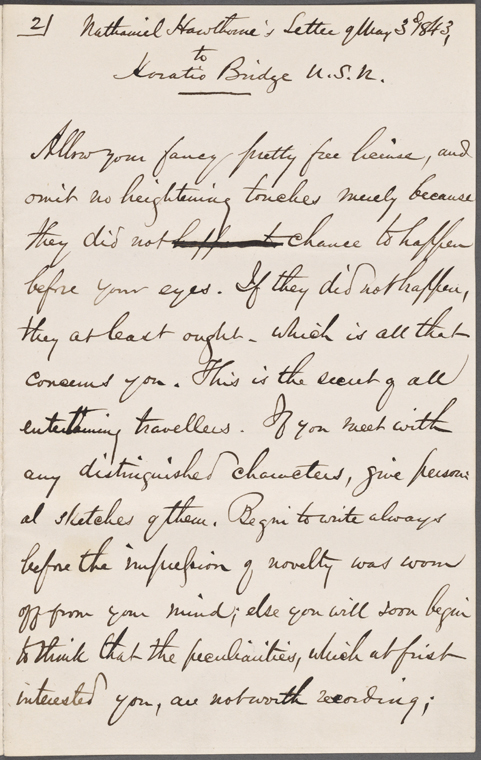 2
Nathaniel Hawthorne's Letter of May 3d 1843,
to
Horatio Bridge U.S.N.
Allow your fancy pretty free license, and
omit no heightening touches merely because
they did not happen to chance to happen
before your eyes. If they did not happen,
they at least ought - which is all that
concerns you. This is the secret of all
entertaining travellers. If you meet with
any distinguished characters, give person-
al sketches of them. Begin to write always
before the impression of novelty was worn
off from your mind; else you will soon begin
to think that the peculiarities, which at first
interested you, are not worth recording;